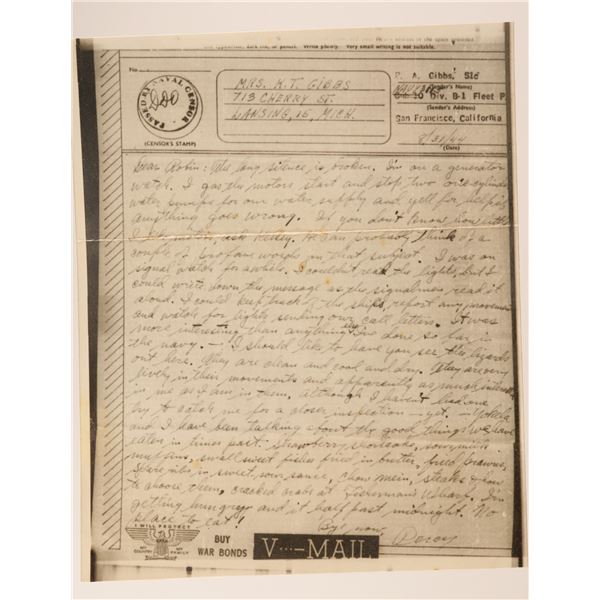 Write plainly. Very small writing is not suitable.
No.
PASSED BY NAVAL CENSOR
(CENSOR'S STAMP)
MRS. H.T. GIBBS
713 CHERRY ST.
LANSING, 15, MICH.
P. A. Gibbs, S1c
(Sender's Name)
Div. B-1 Fleet P
(Sender's Address)
San Francisco, California
8/31/44
(Date)
Dear Robin: The long silence is broken. I'm on a generator
watch. I gas the motors start and stop two one-cylinder
water pumps for our water supply and yell for help if
anything goes wrong. If you don't know how little
I like motors, ask Kelley. He can probably think of a
couple of profane words on that subject. I was on
signal watch for awhile. I couldn't read the lights, but I
could write down the message as the signalman read it
aloud. I could keep track of the ships, report any movement
and watch for lights sending our call letters. It was
more interesting than anything else I've done so far in
the navy. — I should like to have you see the lizards
out here. They are clean and cool and dry. They are very
lively in their movements and apparently as much interested
in me as I am in them, although I haven't had one
try to catch me for a closer inspection — yet. —
and I have been talking about the good things we have
eaten in times past. Strawberry shortcake, sour milk
muffins, small sweet fishes fried in butter, fried prawns,
spare ribs in sweet, sour sauce, chow mein, steaks & how
to choose them, cracked crabs at Fisherman's Wharf. I'm
getting hungry and it half past midnight. No
place to eat!
Bye now,
Percy
I WILL PROTECT
MY COUNTRY
MY FAMILY
BUY
WAR BONDS
V···-MAIL